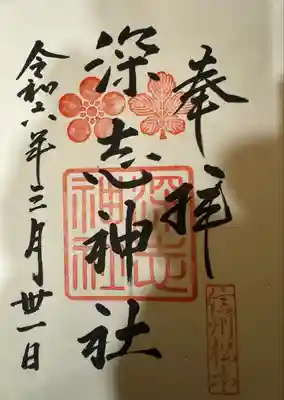 奉拝
信州松本
深志神社
深志神社
令和六年三月卅一日